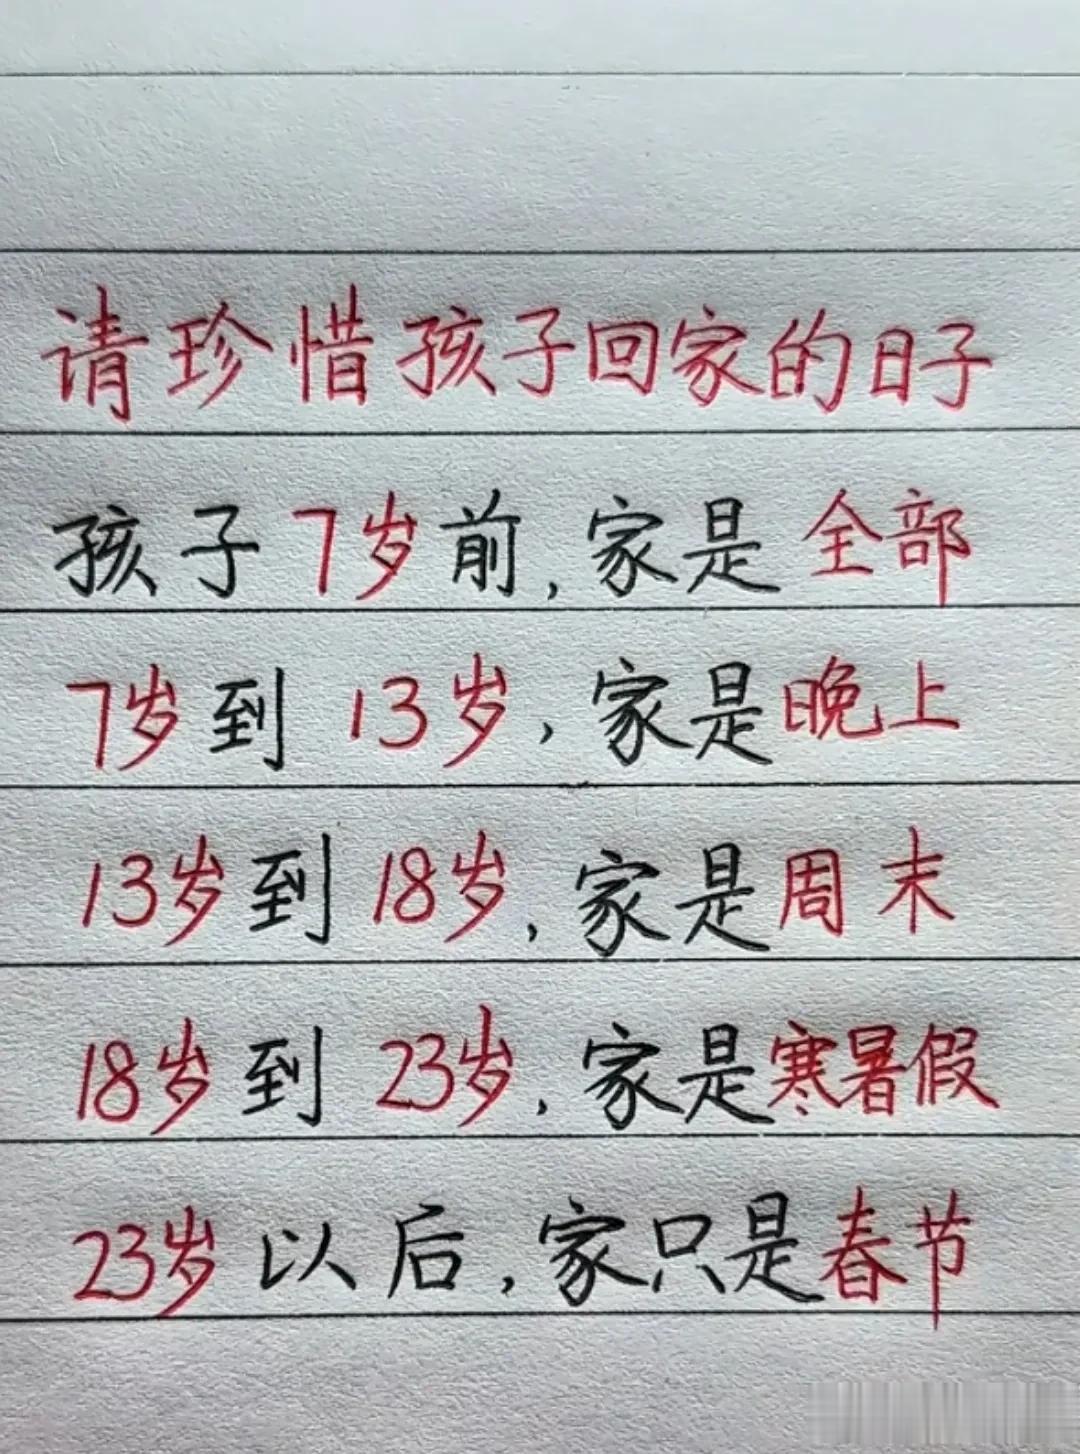 请珍惜孩子回家的日子
孩子7岁前,家是全部
7岁到13岁,家是晚上
13岁到18岁,家是周末
18岁到23岁,家是寒暑假
23岁以后,家只是春节